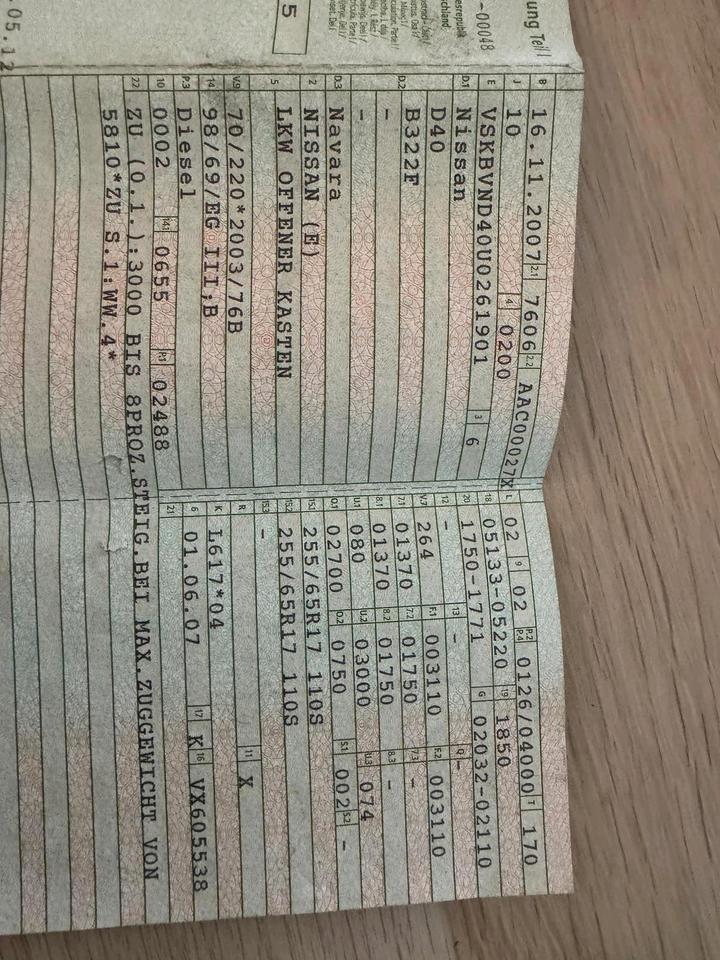 ung Teil I
-00048
esrepublik
schland
5
.05.12
B 16.11.2007 2.1 7606 2.2 AAC00027X
J 10 4 0200
E VSKBVND40U0261901 3 6
D.1 Nissan
D40
D.2 B322F
-
-
D.3 Navara
2 NISSAN (E)
5 LKW OFFENER KASTEN
V.9 70/220*2003/76B
14 98/69/EG III;B
P.3 Diesel
10 0002 14.1 0655 P.1 02488
L 02 9 02 P.2 P.4 0126/04000 T 170
18 05133-05220 19 1850
20 1750-1771 G 02032-02110
12 - 13 - Q -
V.7 264 F.1 003110 F.2 003110
7.1 01370 7.2 01750 7.3 -
8.1 01370 8.2 01750 8.3 -
U.1 080 U.2 03000 U.3 074
O.1 02700 O.2 0750 S.1 002 S.2 -
15.1 255/65R17 110S
15.2 255/65R17 110S
15.3 -
R 11 X
K L617*04
6 01.06.07 17 K 16 VX605538
21
22 ZU (O.1.):3000 BIS 8PROZ.STEIG.BEI MAX.ZUGGEWICHT VON
5810*ZU S.1:WW.4*